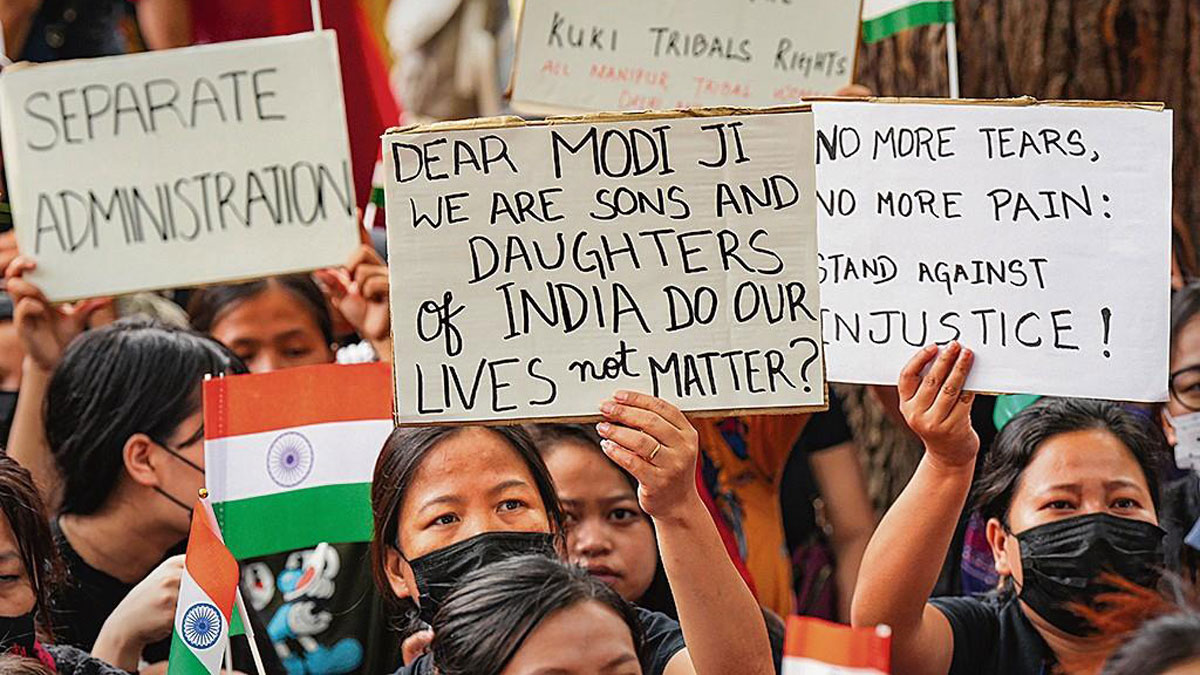 SEPARATE
ADMINISTRATION
KUKI TRIBALS RIGHTS
ALL MANIPUR TRIBAL WOMEN
DELHI
DEAR MODI JI
WE ARE SONS AND
DAUGHTERS
of INDIA DO OUR
LIVES not MATTER?
NO MORE TEARS,
NO MORE PAIN:
STAND AGAINST
INJUSTICE!